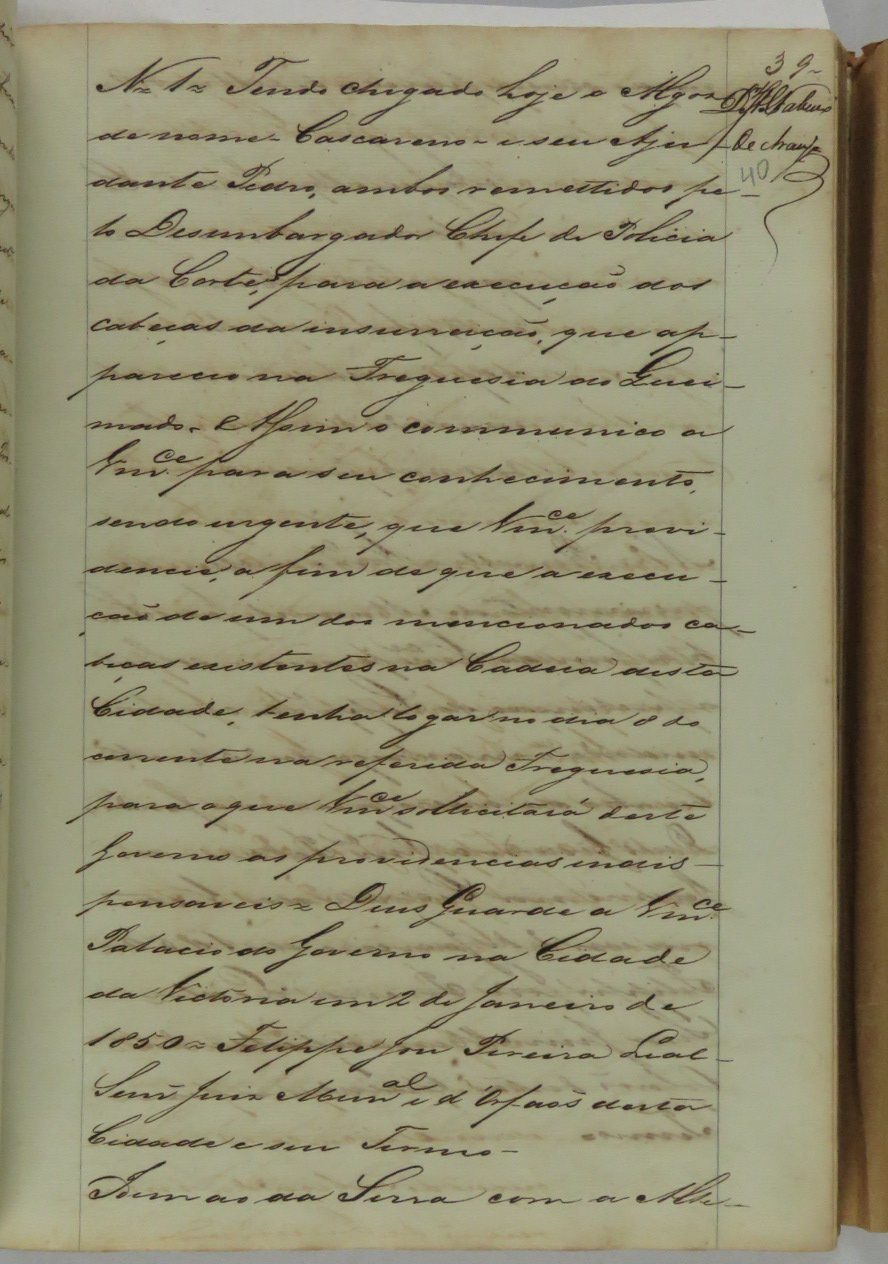 39-
40
De Araujo
N.º 1 = Tendo chegado hoje o Algoz
de nome - Cascareno - e seu Aju-
dante Pedro, ambos remettidos pe-
lo Desembargador Chefe de Policia
da Corte, para a execução dos
cabeças da insurreição, que ap-
pareceo na Freguesia do Quei-
mado. Assim o communico a
Vm.ce para seu conhecimento,
sendo urgente, que Vm.ce provi-
dencie, a fim de que a execu-
ção de um dos mencionados ca-
beças existentes na Cadeia desta
Cidade, tenha logar no dia 8 do
corrente na referida Freguesia,
para o que Vm.ce sollicitará deste
Governo as providencias indis-
pensaveis = Deus Guarde a Vm.ce
Palacio do Governo na Cidade
da Victoria em 2 de Janeiro de
1850 = Felippe José Pereira Leal -
Senr. Juiz Mun.al e d'Orfaõs desta
Cidade e seu Termo -
Idem ao da Serra com a Alte-